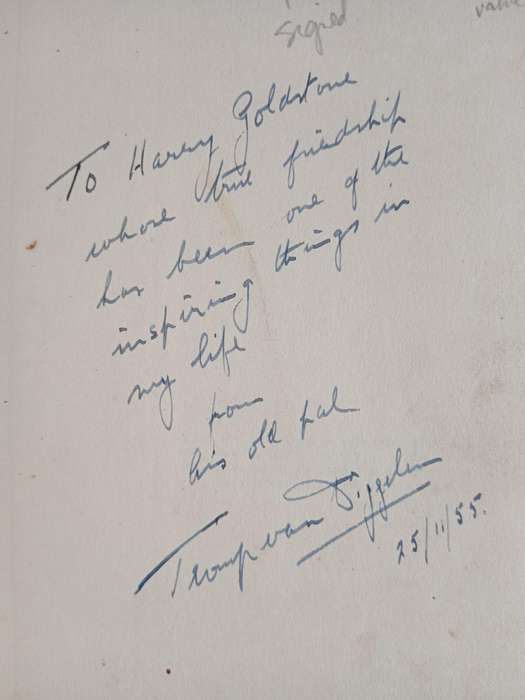 signed
To Harry Goldstone
whose true friendship
has been one of the
inspiring things in
my life
from
his old pal
Tromp van Diggelen
25/11/55.